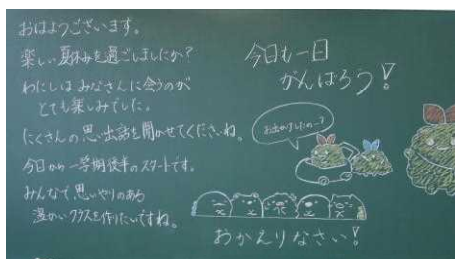 おはようございます。
楽しい夏休みを過ごしましたか?
わたしはみなさんに会うのが
とても楽しみでした。
たくさんの思い出話を聞かせてくださいね。
今日から一学期後半のスタートです。
みんなで思いやりのある
温かいクラスを作りたいですね。
今日も一日
がんばろう!
お出かけしたの〜?
おかえりなさい!